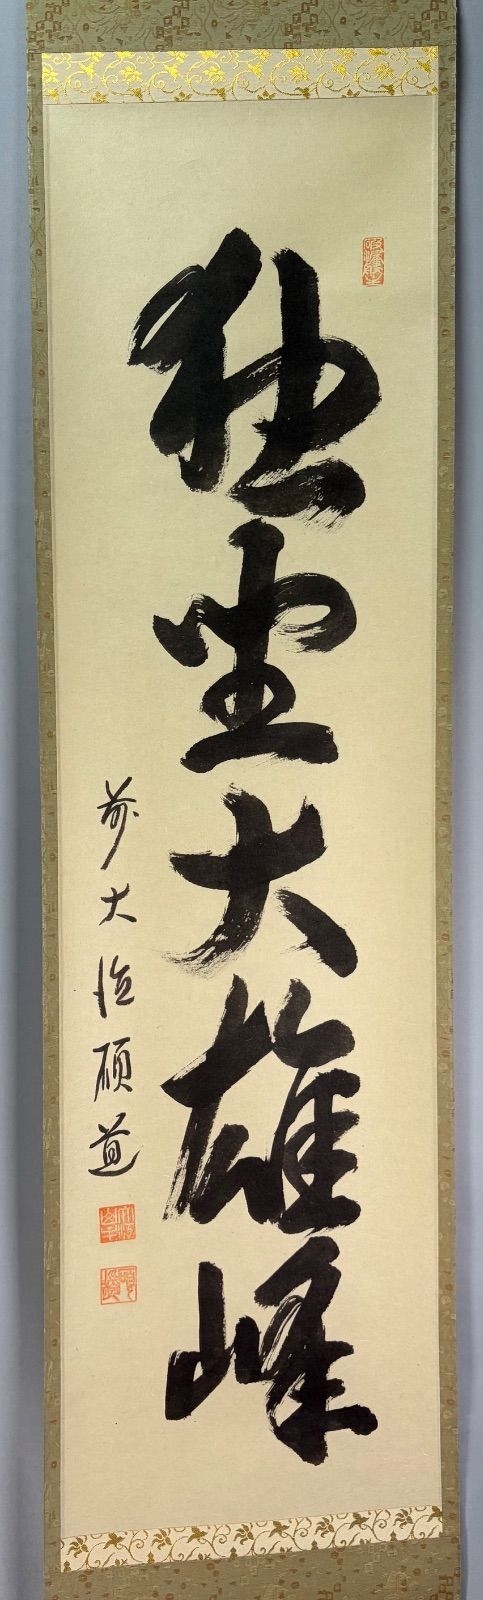 独坐大雄峰
前大徳碩道